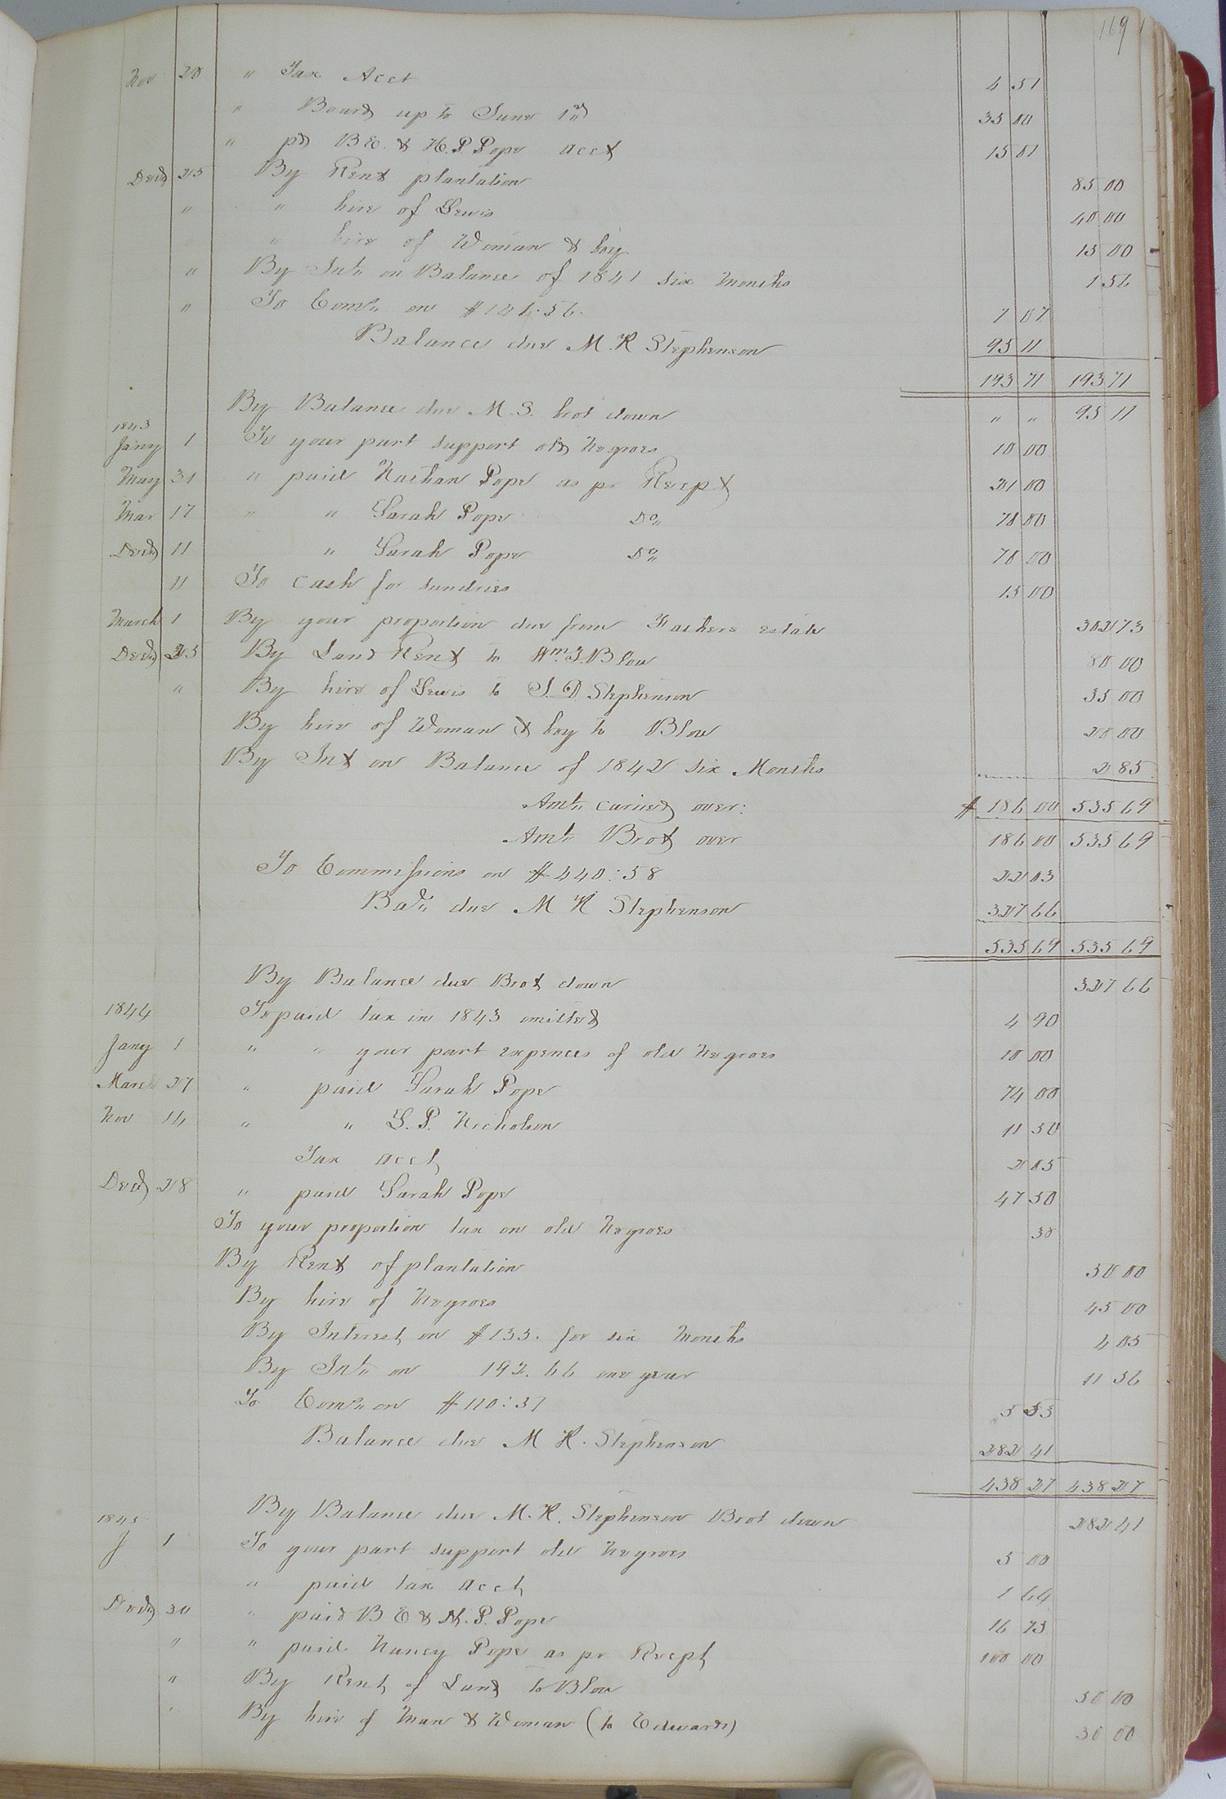 169
Nov 20 " Tax Acct 4 51
" Board up to June 1st 35 00
" pd B E. & H. P Pope acct 15 01
Decr 25 By Rent plantation 85 00
" " hire of Lewis 40 00
" hire of Woman & boy 15 00
" By Int. on Balance of 1841 six Months 1 56
" To Comn. on $141.56. 7 07
Balance due M R Stephenson 95 11
143 71 143 71
By Balance due M. S. brot down " " 95 11
1843
Jany 1 To your part support old Negroes 10 00
May 31 " paid Nathan Pope as pr Recpt 21 00
Mar 17 " " Sarah Pope Do. 78 00
Decr 11 " Sarah Pope Do. 70 00
11 To cash for sundries 15 00
March 1 By your proportion due from Fathers estate 302 73
Decr 25 By Land Rent to Wm. J. Blow 80 00
" By hire of Lewis to J. D. Stephenson 35 00
By hire of Woman & boy to Blow 20 00
By Int on Balance of 1842 six Months 2 85
Amt. caried over: $ 186 00 535 69
Amt. Brot over 186 00 535 69
To Commissions on $440:58 22 03
Bal. due M R Stephenson 327 66
535 69 535 69
By Balance due Brot down 327 66
1844 To paid tax in 1843 omitted 4 90
Jany 1 " " your part expences of old Negroes 10 00
March 27 " paid Sarah Pope 74 00
Nov 14 " " G. P. Nicholson 11 50
Tax acct 2 05
Decr 28 " paid Sarah Pope 47 50
To your proportion tax on old Negroes 38
By Rent of plantation 50 00
By hire of Negroes 45 00
By Interest on $135. for six Months 4 05
By Int. on 192.66 one year 11 56
To Comn. on $110:37 5 53
Balance due M R. Stephenson 282 41
438 27 438 27
By Balance due M. R. Stephenson Brot down 282 41
1845
J 1 To your part support old Negroes 5 00
" paid tax acct 1 64
Decr 30 " paid B E & N. P. Pope 16 73
" " paid Nancy Pope as pr Recpt 100 00
" By Rent of Land to Blow 50 00
" By hire of Man & Woman (to Edwards) 30 00